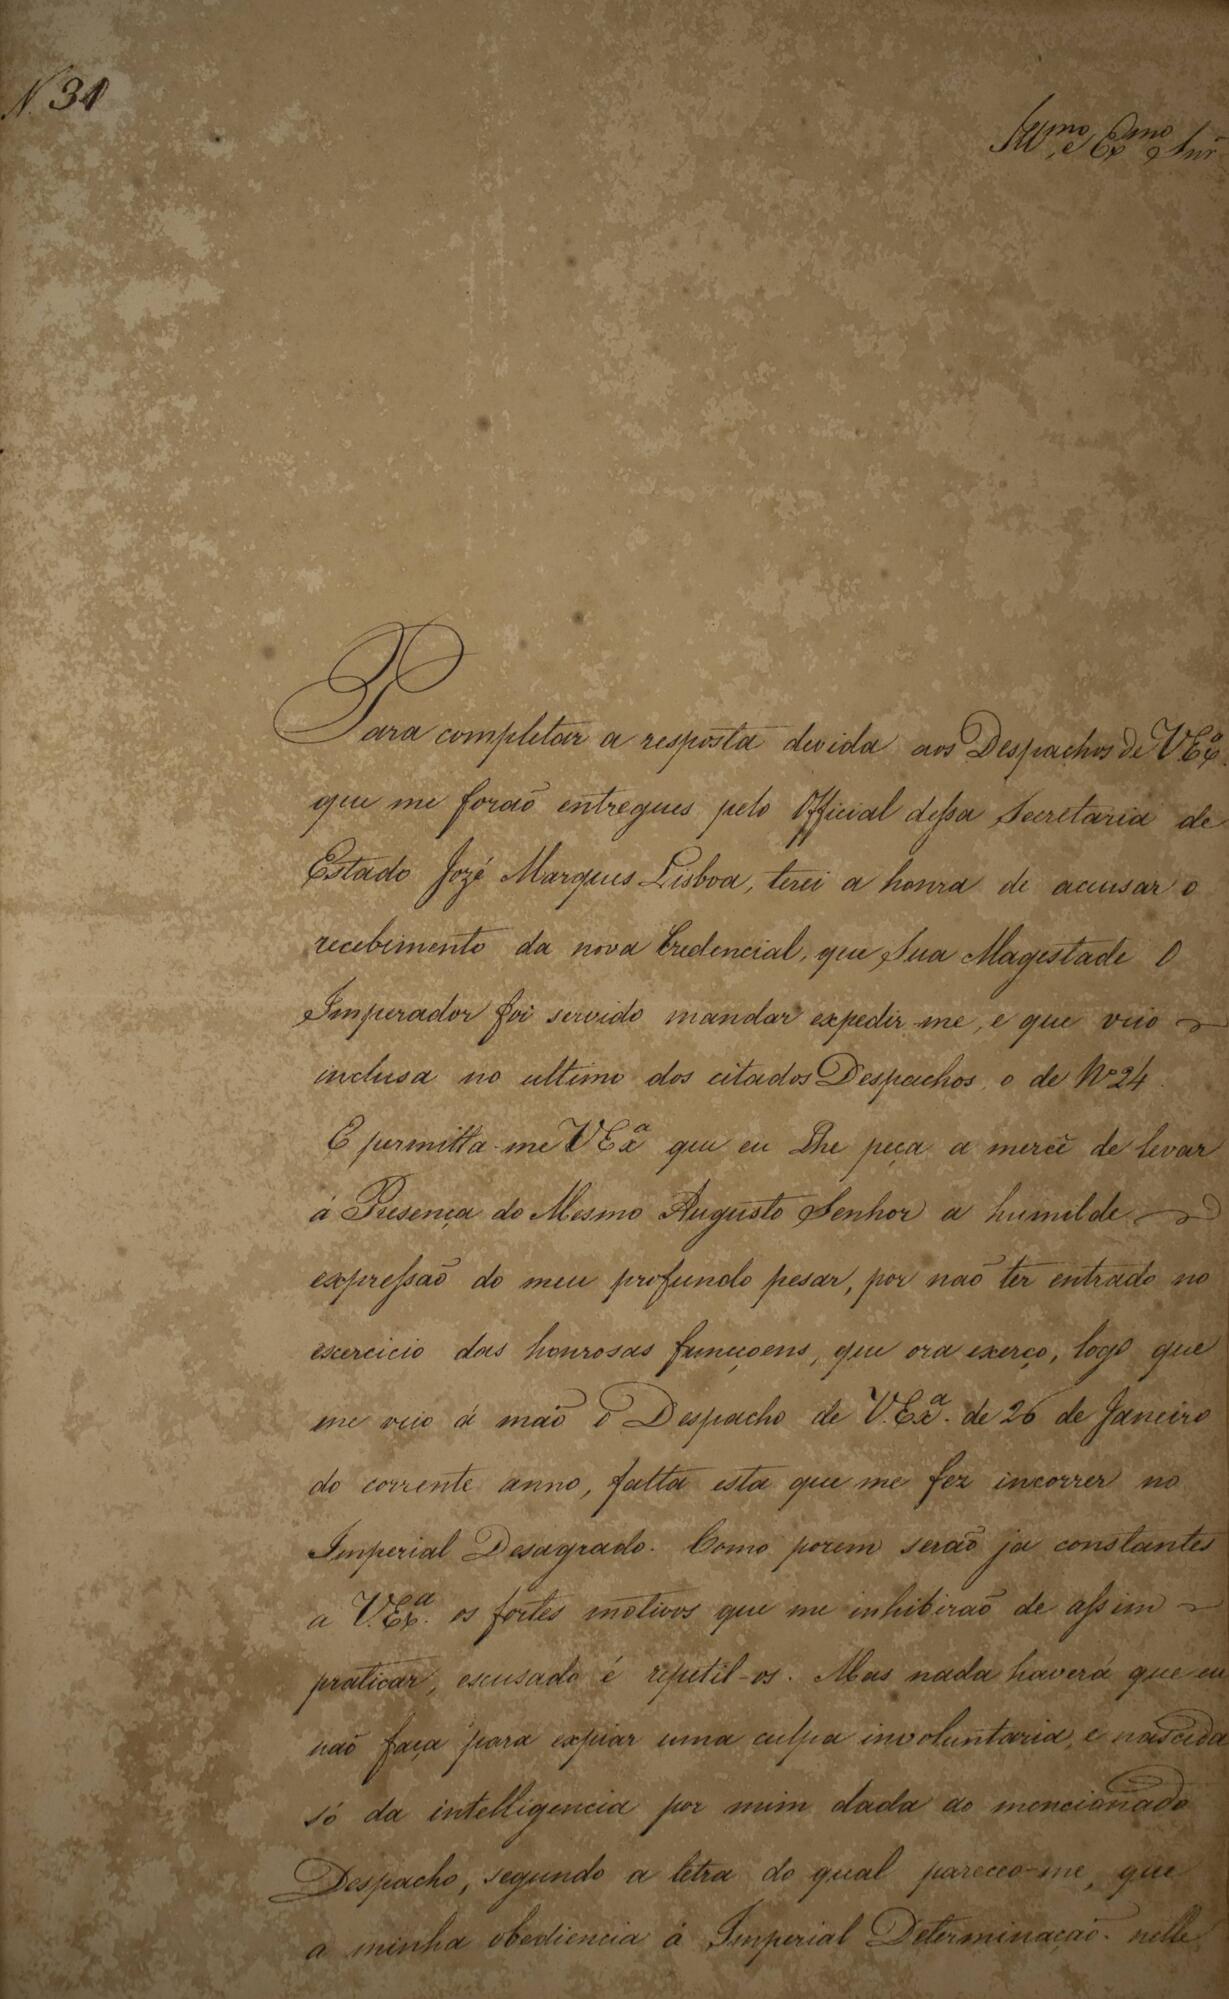 N. 31
Illmo e Exmo Snr
Para completar a resposta devida aos Despachos de V.Exa.
que me forão entregues pelo Official dessa Secretaria de
Estado Jozé Marques Lisboa, terei a honra de accusar o
recebimento da nova Credencial, que Sua Magestade O
Imperador foi servido mandar expedir-me, e que veio
inclusa no ultimo dos citados Despachos, o de No 24.
E permitta-me V Exa que eu Lhe peça a mercê de levar
á Presença do Mesmo Augusto Senhor a humilde
expressão do meu profundo pesar, por não ter entrado no
exercicio das honrosas funuçoens, que ora exerço, logo que
me veio á mão o Despacho de V.Exa. de 26 de Janeiro
do corrente anno, falta esta que me fez incorrer no
Imperial Desagrado. Como porem serão ja constantes
a V.Exa. os fortes motivos que me inhibirão de assim
praticar, escusado é repetil-os. Mas nada haverá que eu
não faça para expiar uma culpa involuntaria, e nascida
só da intelligencia por mim dada ao mencionado
Despacho, segundo a letra do qual pareceo-me, que
a minha obediencia á Imperial Determinação. nelle